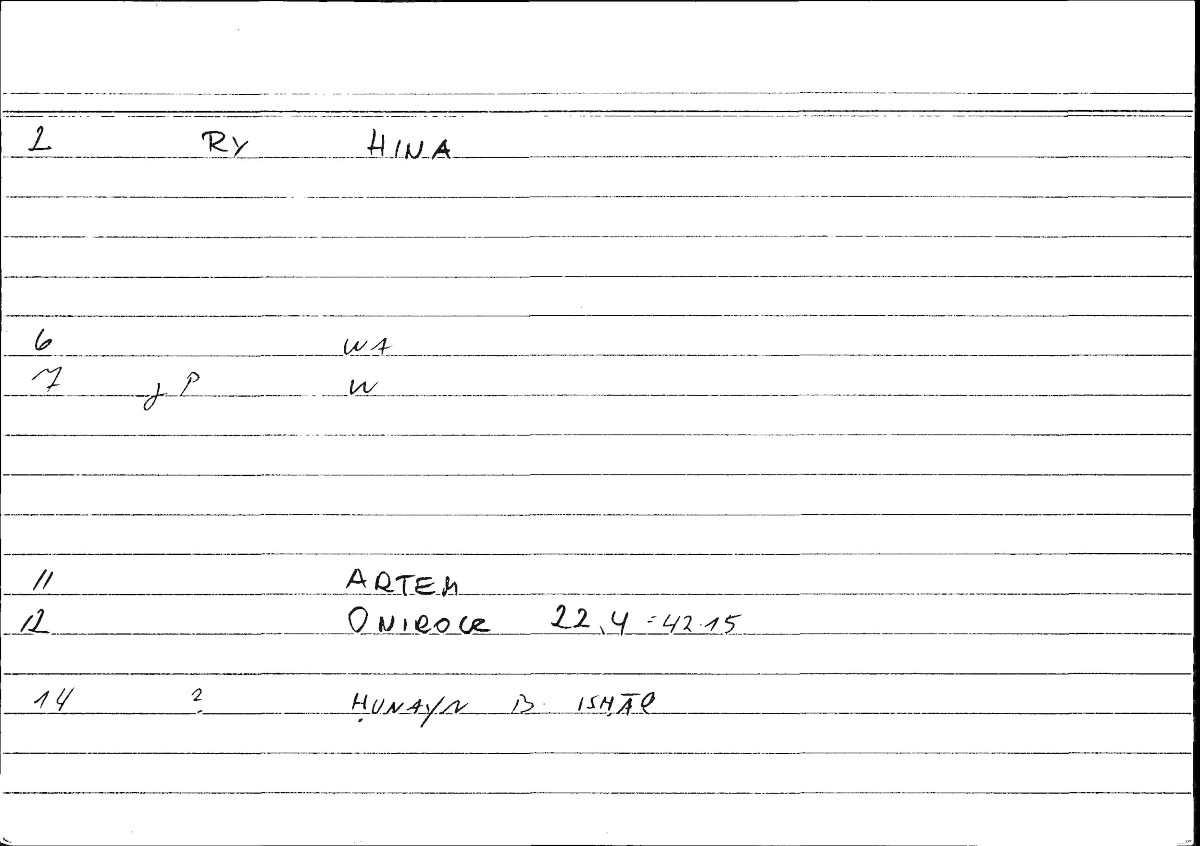 2 RY HINA
6 WA
7 d P W
11 ARTEM
12 ONIROCR 22,4 = 42.15
14 ? ḤUNAYN B. ISḤĀQ